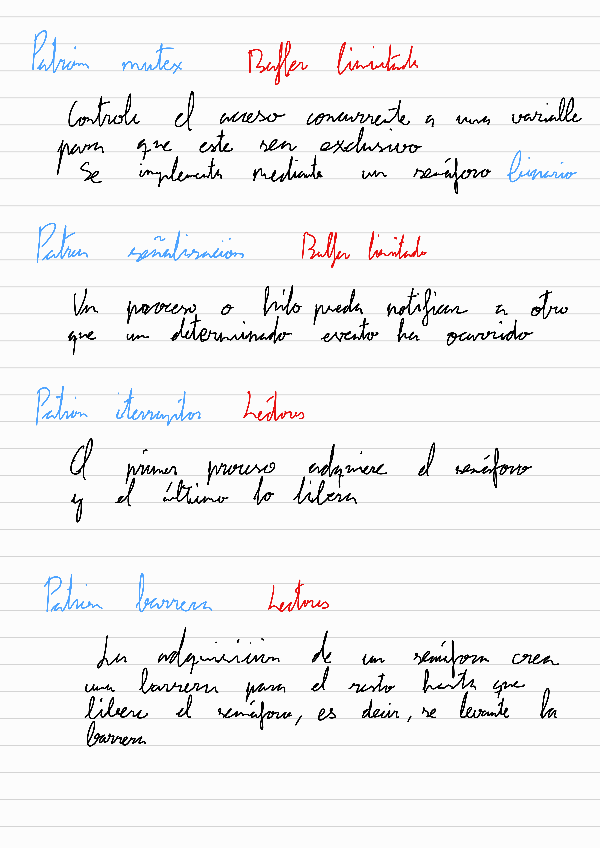 Patrón mutex Buffer limitado
Controla el acceso concurrente a una variable
para que este sea exclusivo
Se implementa mediante un semáforo binario
Patrón señalización Buffer limitado
Un proceso o hilo pueda notificar a otro
que un determinado evento ha ocurrido
Patrón iterruptor Lectores
El primer proceso adquiere el semáforo
y el último lo libera
Patrón barrera Lectores
La adquisición de un semáforo crea
una barrera para el resto hasta que
libere el semáforo, es decir, se levante la
barrera